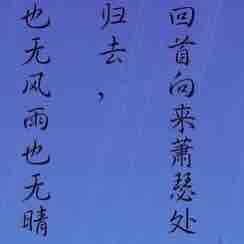 回首向来萧瑟处
归去，
也无风雨也无晴